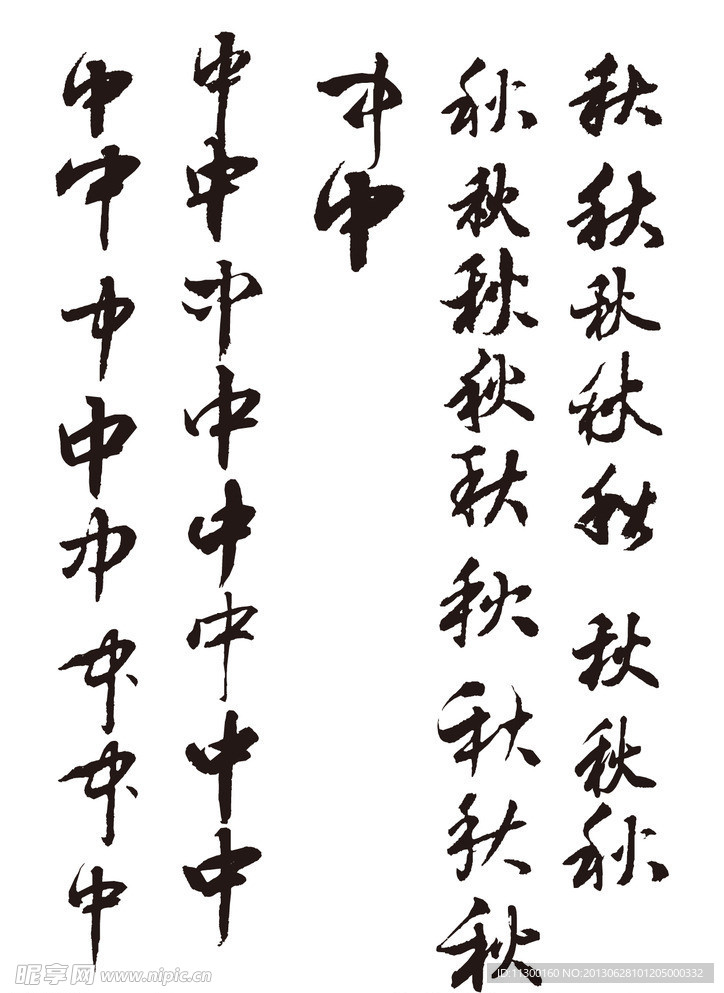 中中中中中中中中
中中中中中中中中
中中
秋秋秋秋秋秋秋秋秋
秋秋秋秋秋秋秋秋
昵享网 www.nipic.cn
ID:11300160 NO:20130628101205000332